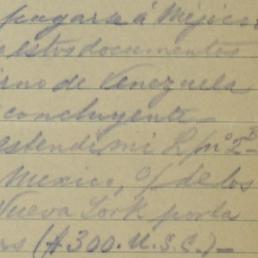 pagara á Mexico
estos documentos
rno de Venezuela
concluyente -
estendi mi R/ nº 2 B
Mexico, o/ de los
Nueva York por la
($300. U.S.C.) -